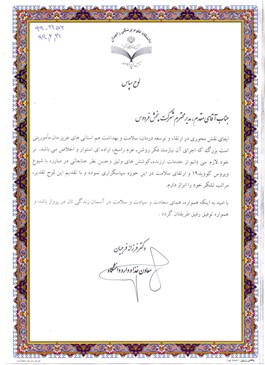 لوح سپاس
جناب آقای مقدم، مدیر محترم شرکت پخش فردوس
ایفای نقش محوری در ارتقاء و توسعه درمان، سلامت و بهداشت هم استانی های عزیزمان مأموریتی
است بزرگ که اجرای آن نیازمند فکر روشن، عزم راسخ، اراده ای استوار و اخلاص می باشد. بر
خود لازم می دانم از خدمات ارزنده، کوشش های وثیق و حسن نظر جنابعالی در مبارزه با شیوع
ویروس کووید-۱۹ و ارتقای سلامت در این حوزه سپاسگزاری نموده و با تقدیم این لوح تقدیر،
مراتب تشکر خود را ابراز دارم.
با امید به اینکه همواره، همای سعادت و سیادت و سلامت در آسمان زندگی تان در پرواز باشد و
همواره توفیق رفیق طریقتان گردد.
دکتر فرزانه فرجیان
معاون غذا و دارو دانشگاه